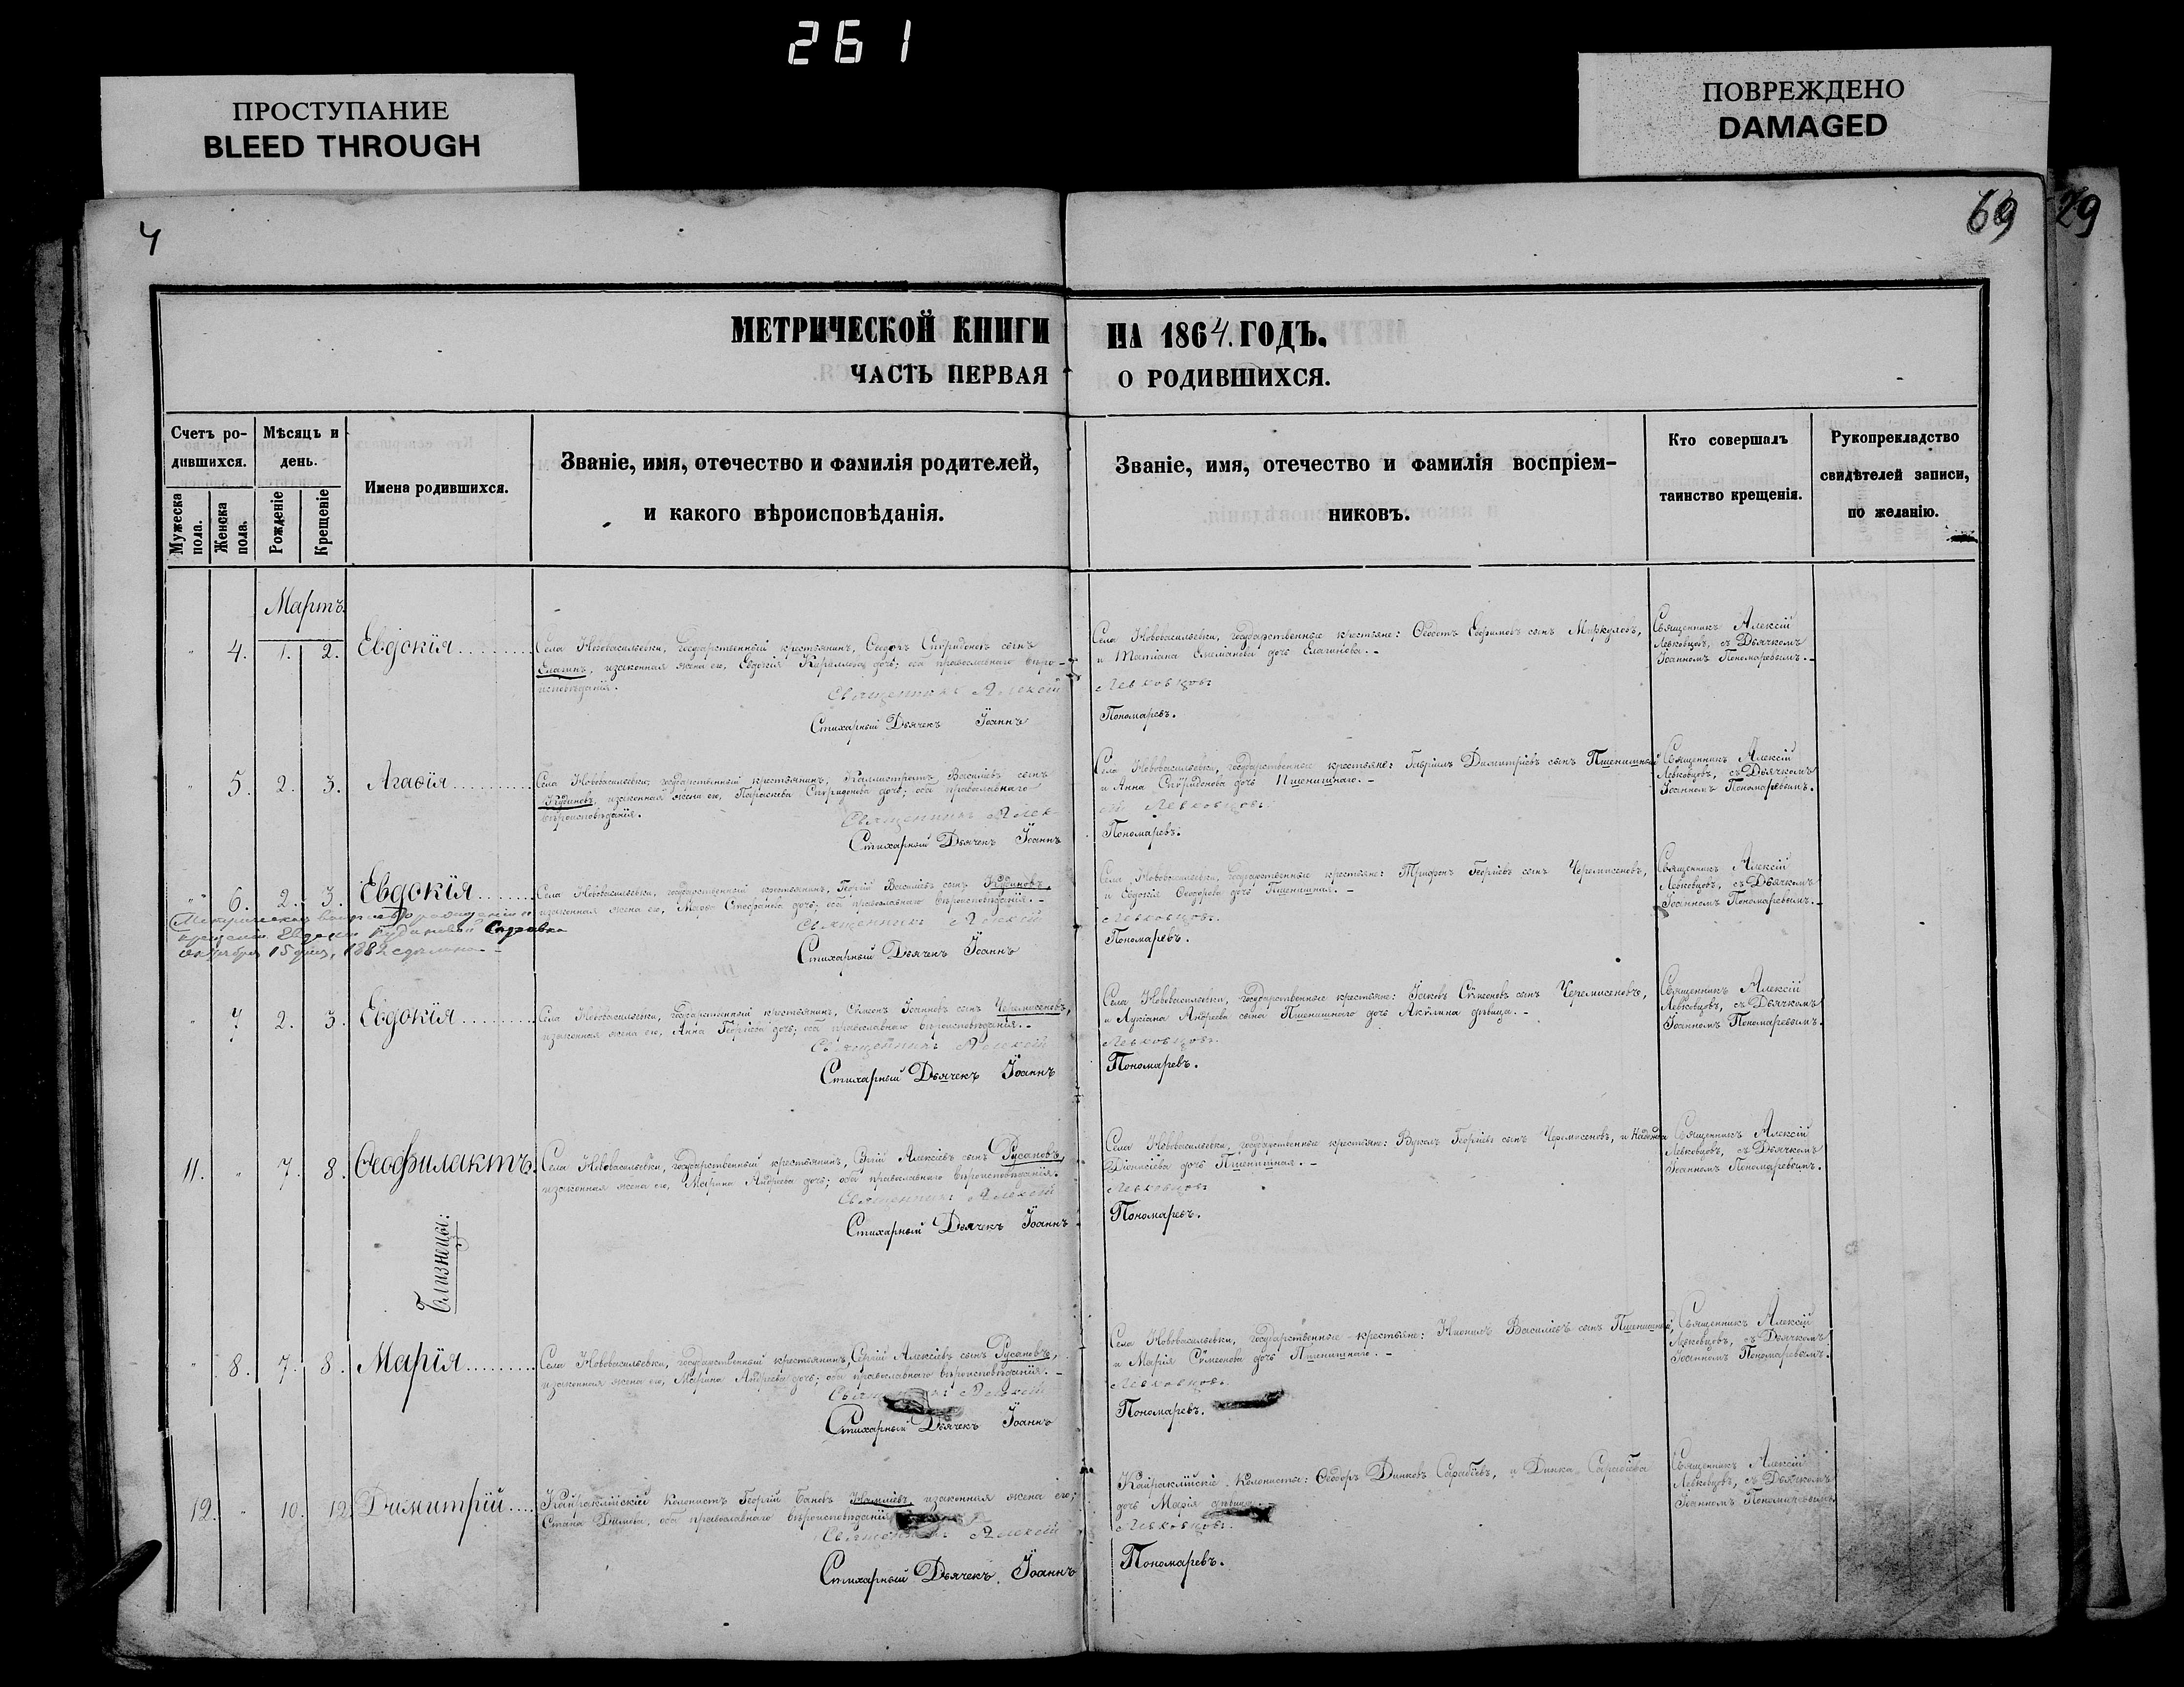 261
ПРОСТУПАНИЕ
BLEED THROUGH
ПОВРЕЖДЕНО
DAMAGED
4
69
29
МЕТРИЧЕСКОЙ КНИГИ НА 1864. ГОДЪ.
ЧАСТЬ ПЕРВАЯ О РОДИВШИХСЯ.
Счетъ ро-
дившихся.
Мужеска
пола.
Женска
пола.
Мѣсяцъ и
день.
Рожденіе
Крещеніе
Имена родившихся.
Званіе, имя, отечество и фамилія родителей,
и какого вѣроисповѣданія.
Званіе, имя, отечество и фамилія воспріем-
никовъ.
Кто совершалъ
таинство крещенія.
Рукоприкладство
свидѣтелей записи,
по желанію.
Мартъ.
" 4. 1. 2. Евдокія
Села Нововасильевки, государственный крестьянинъ, Ѳедотъ Спиридоновъ сынъ
изаконная жена его, Евдокія Кириллова дочь; оба православнаго вѣро-
исповѣданія.
Священникъ Алексій
Стихарный Дьячекъ Іоаннъ
Села Нововасильевки, государственные крестьяне: Ѳеоктистъ сынъ Меркуловъ,
и Татіана дочь Елагинова.-
Левковцовъ
Пономаревъ.
Священникъ Алексій
Левковцовъ, съ Дьячкомъ
Іоанномъ Пономаревымъ.-
" 5. 2. 3. Агаѳія
Села Нововасильевки, государственный крестьянинъ, Каллистратъ Василіевъ сынъ
Кудиновъ, изаконная жена его, Параскева Спиридонова дочь; оба православнаго
вѣроисповѣданія.
Священникъ Алек
Стихарный Дьячекъ Іоаннъ
Села Нововасильевки, государственные крестьяне: Гавріилъ Димитріевъ сынъ Пшенишный
и Анна Спиридонова дочь Пшенишнаго.-
сій Левковцовъ
Пономаревъ.
Священникъ Алексій
Левковцовъ, съ Дьячкомъ
Іоанномъ Пономаревымъ.
" 6. 2. 3. Евдокія
Села Нововасильевки, государственный крестьянинъ, Георгій Василіевъ сынъ Кудиновъ,
изаконная жена его, Марѳа Стефанова дочь; оба православнаго вѣроисповѣданія.-
Священникъ Алексій
Стихарный Дьячекъ Іоаннъ
Села Нововасильевки, государственные крестьяне: Трифонъ Георгіевъ сынъ Черемисеновъ,
и Евдокія Ѳеодорова дочь Пшенишная.-
Левковцовъ.
Пономаревъ.
Священникъ Алексій
Левковцовъ, съ Дьячкомъ
Іоанномъ Пономаревымъ.-
крещеніи Евдокіи Кудиновой Справка
октября 15 дня, 1882 сдѣлана
" 7 2. 3. Евдокія
Села Нововасильевки, государственный крестьянинъ, Сѵмеонъ Іоанновъ сынъ Черемисеновъ,
изаконная жена его, Анна Георгіева дочь; оба православнаго вѣроисповѣданія.-
Священникъ Алексій
Стихарный Дьячекъ Іоаннъ
Села Нововасильевки, государственные крестьяне: Іаковъ Сѵмеоновъ сынъ Черемисеновъ,
и Лукіана Андреева сына Пшенишнаго дочь Акилина дѣвица.-
Левковцовъ.
Пономаревъ.
Священникъ Алексій
Левковцовъ, съ Дьячкомъ
Іоанномъ Пономаревымъ.
11. " 7. 8. Ѳеофилактъ.
Села Нововасильевки, государственный крестьянинъ, Сергій Алексіевъ сынъ Русановъ,
изаконная жена его, Марина Андреева дочь; оба православнаго вѣроисповѣданія.
Священникъ Алексій
Стихарный Дьячекъ Іоаннъ
Села Нововасильевки, государственные крестьяне: Вуколъ Георгіевъ сынъ Черемисеновъ, и Надежда
Діонисіева дочь Пшенишная.-
Левковцовъ
Пономаревъ.
Священникъ Алексій
Левковцовъ, съ Дьячкомъ
Іоанномъ Пономаревымъ.
Близнецы:
" 8. 7. 8. Марія
Села Нововасильевки, государственный крестьянинъ, Сергій Алексіевъ сынъ Русановъ,
изаконная жена его, Марина Андреева дочь; оба православнаго вѣроисповѣданія.-
Алексій
Стихарный Дьячекъ Іоаннъ
Села Нововасильевки, государственные крестьяне: Василіевъ сынъ Пшенишный,
и Марія Сѵмеонова дочь Пшенишнаго.-
Левковцовъ.
Пономаревъ.
Священникъ Алексій
Левковцовъ, съ Дьячкомъ
Іоанномъ Пономаревымъ.
12. " 10. 12. Димитрій
Кайраклійскій колонистъ Георгій Бановъ изаконная жена его,
Стана Димова, оба православнаго вѣроисповѣданія
Священникъ Алексій
Стихарный Дьячекъ Іоаннъ
Кайраклійскіе колонисты: Ѳеодоръ Динковъ Сарабіевъ, и Динка Сарабіева
дочь Марія дѣвица.-
Левковцовъ.
Пономаревъ.
Священникъ Алексій
Левковцовъ, съ Дьячкомъ
Іоанномъ Пономаревымъ.